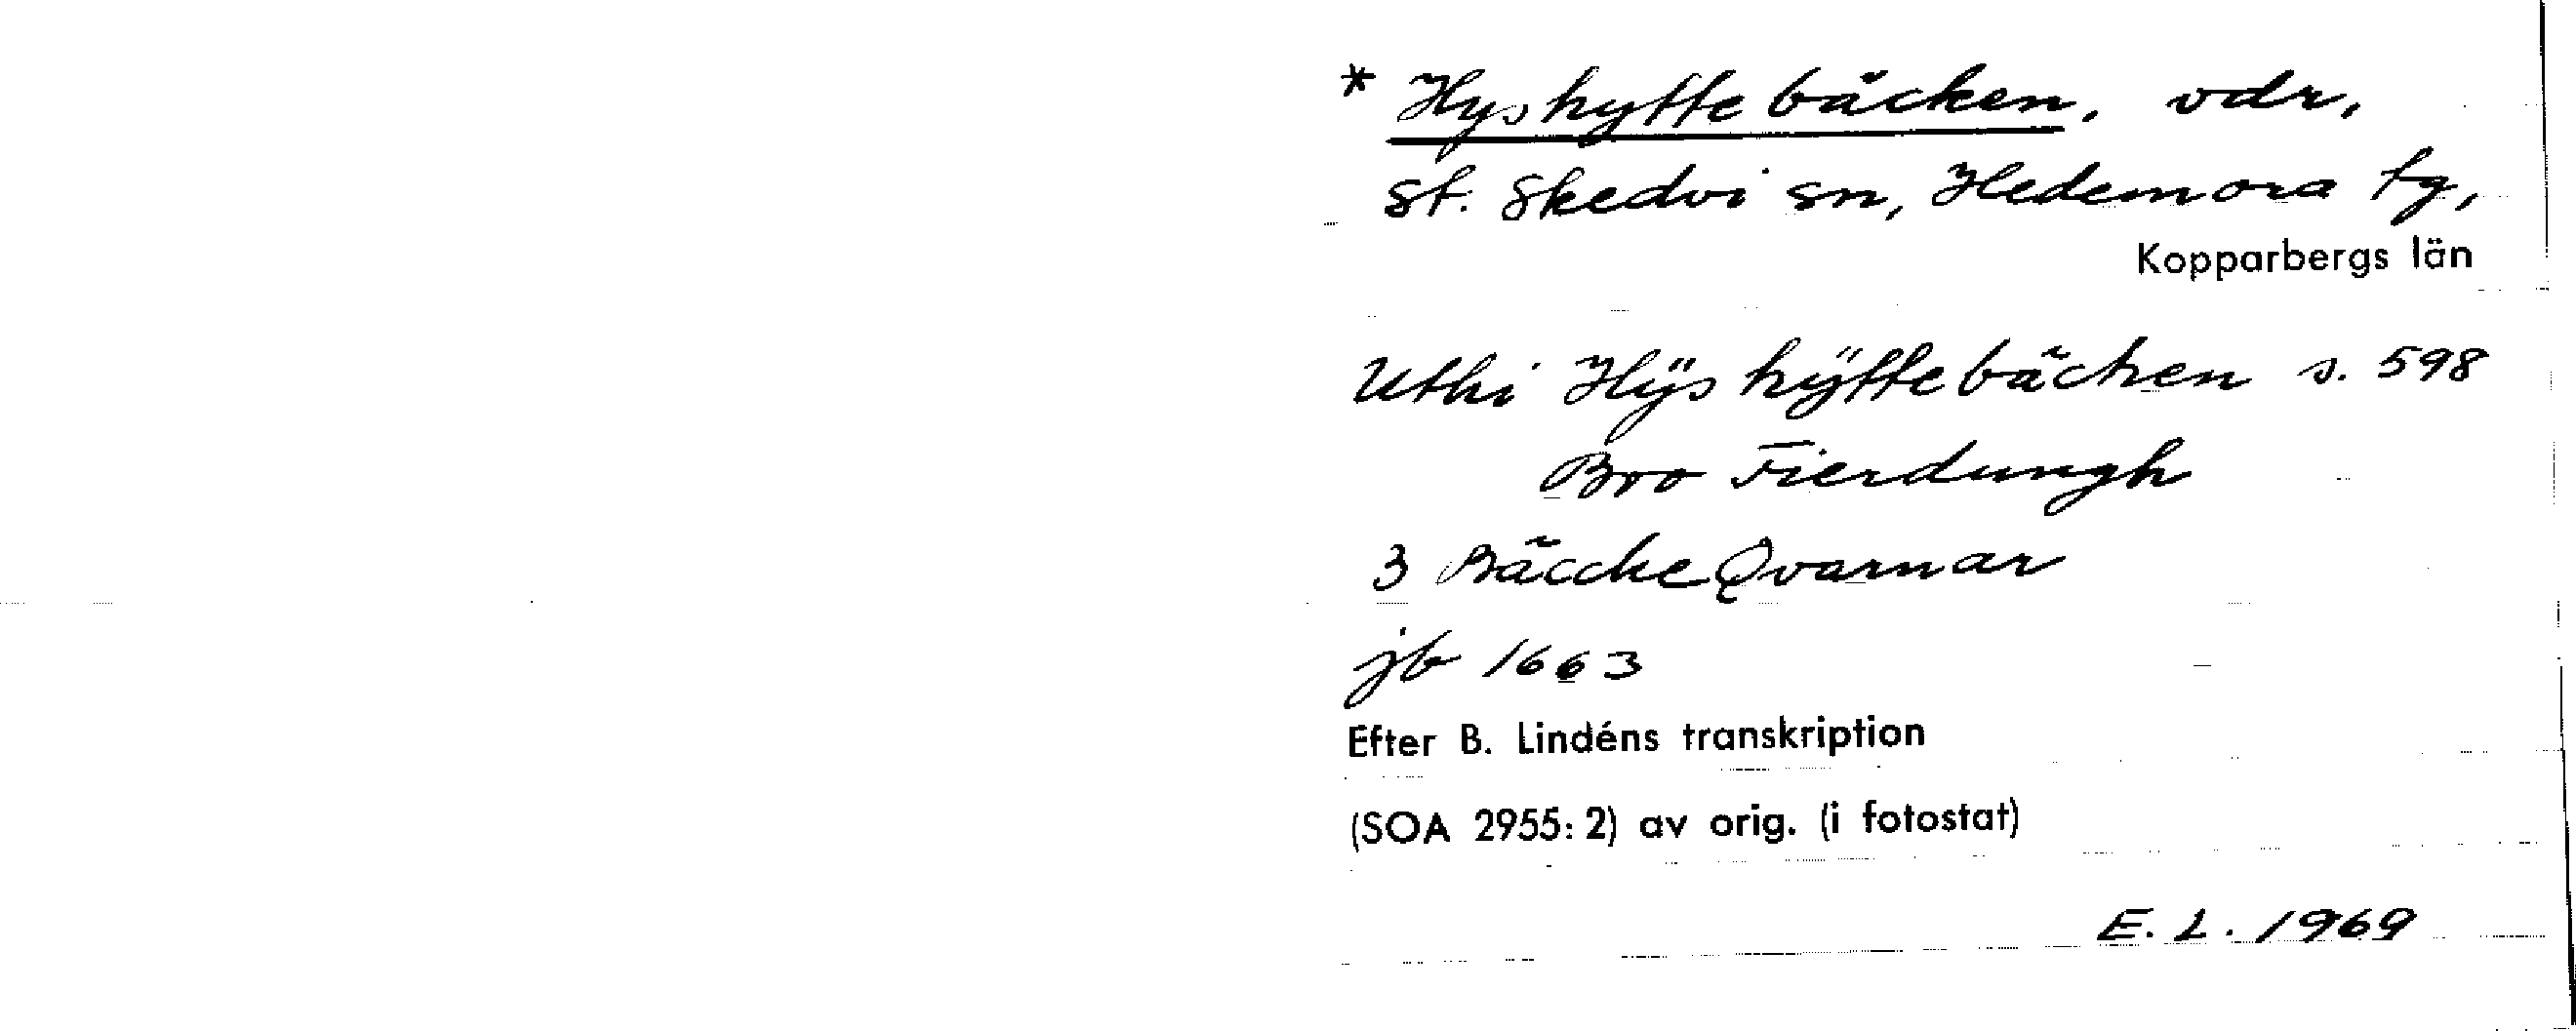 * Hyshyttebäcken, vdr,
St. Skedvi sn, Hedemora tg,
Kopparbergs län
Uthi Hÿshÿttebäcken s. 598
Bro Fierdungh
3 BäcckeQvarnar
jb 1663
Efter B. Lindéns transkription
(SOA 2955:2) av orig. (i fotostat)
E. L. 1969